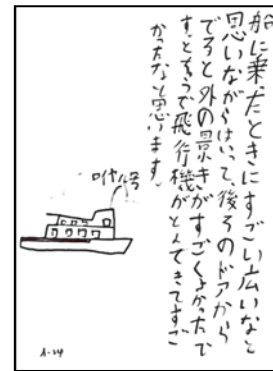 船に乗たときにすごい広いなと
思いながらはいって、後ろのドアから
でると外の景きがすごくよかったで
すとちゅうで飛行機がとんできてすご
かったなと思います。
A-24